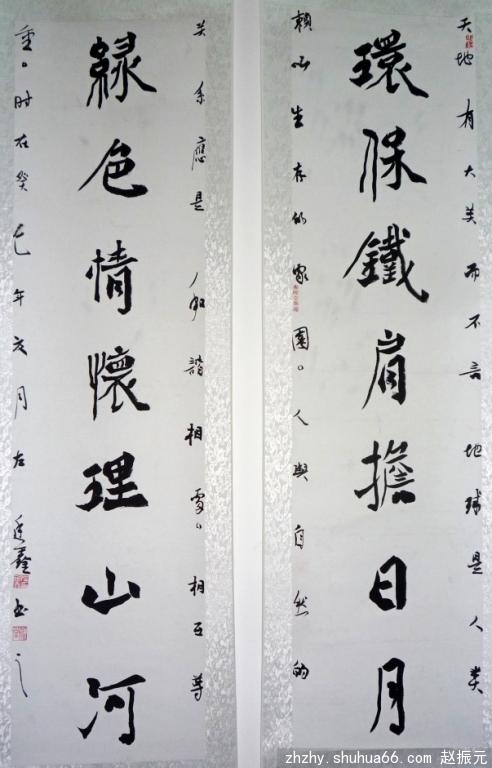 天地有大美而不言 地球是人类
環保鐵肩擔日月
賴以生存的家園。人與自然的
关系應是 諧相處。相互尊
緑色情懷理山河
重。时在癸巳年夏月左 鑫书之
zhzhy.shuhua66.com 赵振元